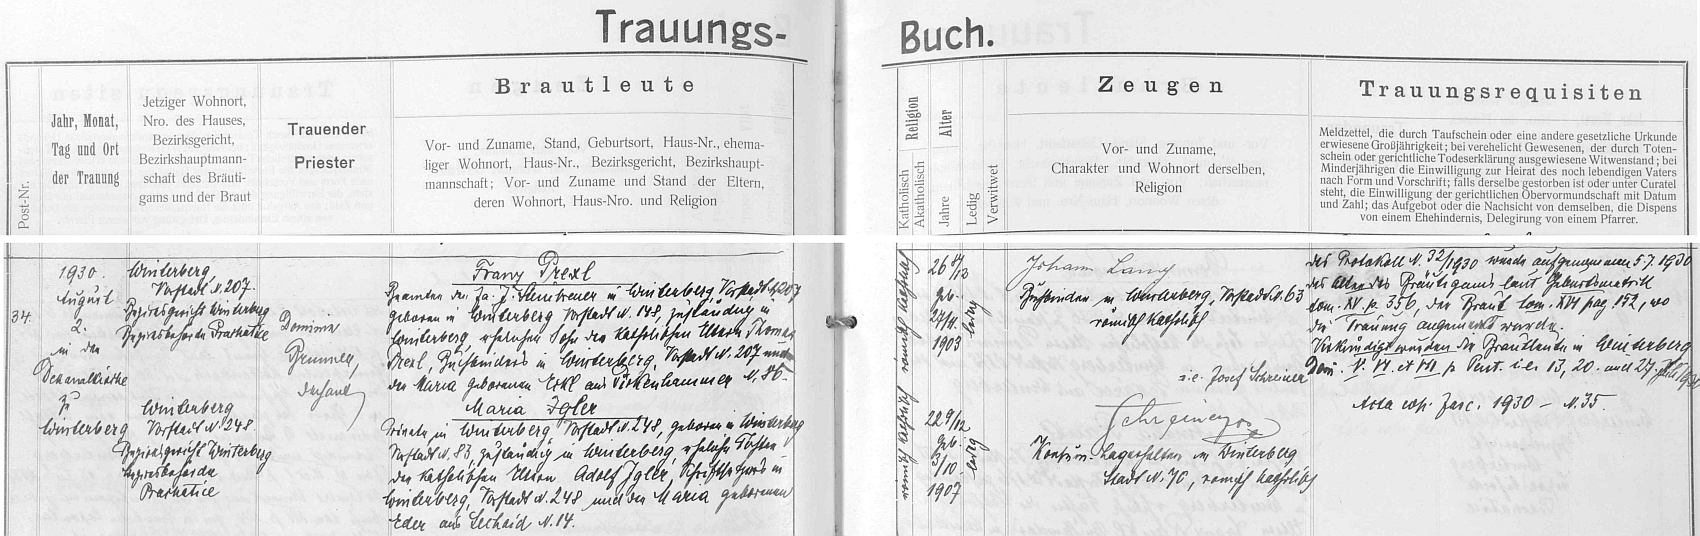 Trauungs-
Buch.
Post-Nr.
Jahr, Monat,
Tag und Ort
der Trauung
Jetziger Wohnort,
Nro. des Hauses,
Bezirksgericht,
Bezirkshauptmann-
schaft des Bräuti-
gams und der Braut
Trauender
Priester
Brautleute
Vor- und Zuname, Stand, Geburtsort, Haus-Nr., ehema-
liger Wohnort, Haus-Nr., Bezirksgericht, Bezirkshaupt-
mannschaft; Vor- und Zuname und Stand der Eltern,
deren Wohnort, Haus-Nro. und Religion
Religion
Katholisch
Akatholisch
Alter
Jahre
Ledig
Verwitwet
Zeugen
Vor- und Zuname,
Charakter und Wohnort derselben,
Religion
Trauungsrequisiten
Meldzettel, die durch Taufschein oder eine andere gesetzliche Urkunde
erwiesene Großjährigkeit; bei verehelicht Gewesenen, der durch Toten-
schein oder gerichtliche Todeserklärung ausgewiesene Witwenstand; bei
Minderjährigen die Einwilligung zur Heirat des noch lebendigen Vaters
nach Form und Vorschrift; falls derselbe gestorben ist oder unter Curatel
steht, die Einwilligung der gerichtlichen Obervormundschaft mit Datum
und Zahl; das Aufgebot oder die Nachsicht von demselben, die Dispens
von einem Ehehindernis, Delegirung von einem Pfarrer.
34.
1930.
August
2.
in der
Dekanalkirche
zu
Winterberg
Winterberg
Vorstadt N. 207.
Bezirksgericht Winterberg
Bezirksbehörde Prachatice
Winterberg
Vorstadt N. 248.
Bezirksgericht Winterberg
Bezirksbehörde
Prachatice
Dominik
Brunner,
Dechant
Franz Prexl
Beamter der Fa. J. Steinbrener in Winterberg Vorstadt N. 207
geboren in Winterberg Vorstadt N. 148, zuständig in
Winterberg, ehelicher Sohn der katholischen Eltern Thomas
Prexl, Buchbinders in Winterberg, Vorstadt N. 207 und
der Maria geborenen Erkl aus Birkenhammer N. 86.
Maria Igler
Private in Winterberg Vorstadt N. 248, geboren in Winterberg
Vorstadt N. 83, zuständig in Winterberg, eheliche Tochter
der katholischen Eltern Adolf Igler, Schriftsetzers in
Winterberg, Vorstadt N. 248 und der Maria geborenen
Eder aus N. 14.
römisch katholisch
26 4/13
geb.
27/4.
1903
ledig
römisch katholisch
22 9/12
geb.
3/10.
1907
ledig
Johann Lang
Buchbinder in Winterberg, Vorstadt N. 63
römisch katholisch
i.e. Josef Schreiner
Konsum-Lagerhalter in Winterberg
Stadt N. 70, römisch katholisch
Das Protokoll N. 32/1930 wurde aufgenommen 5.7.1930
das Alter des Bräutigams laut Geburtsmatrik
tom. XV. p. 356, der Braut tom. XVI pag 152, wo
die Trauung angemerkt wurde.
Verkündigt wurden die Brautleute in Winterberg
Dom. V. VI. et VII p. Pent. i.e. 13, 20. und 27. Juli 1930
Acta cop. fasc. 1930 – N. 35.